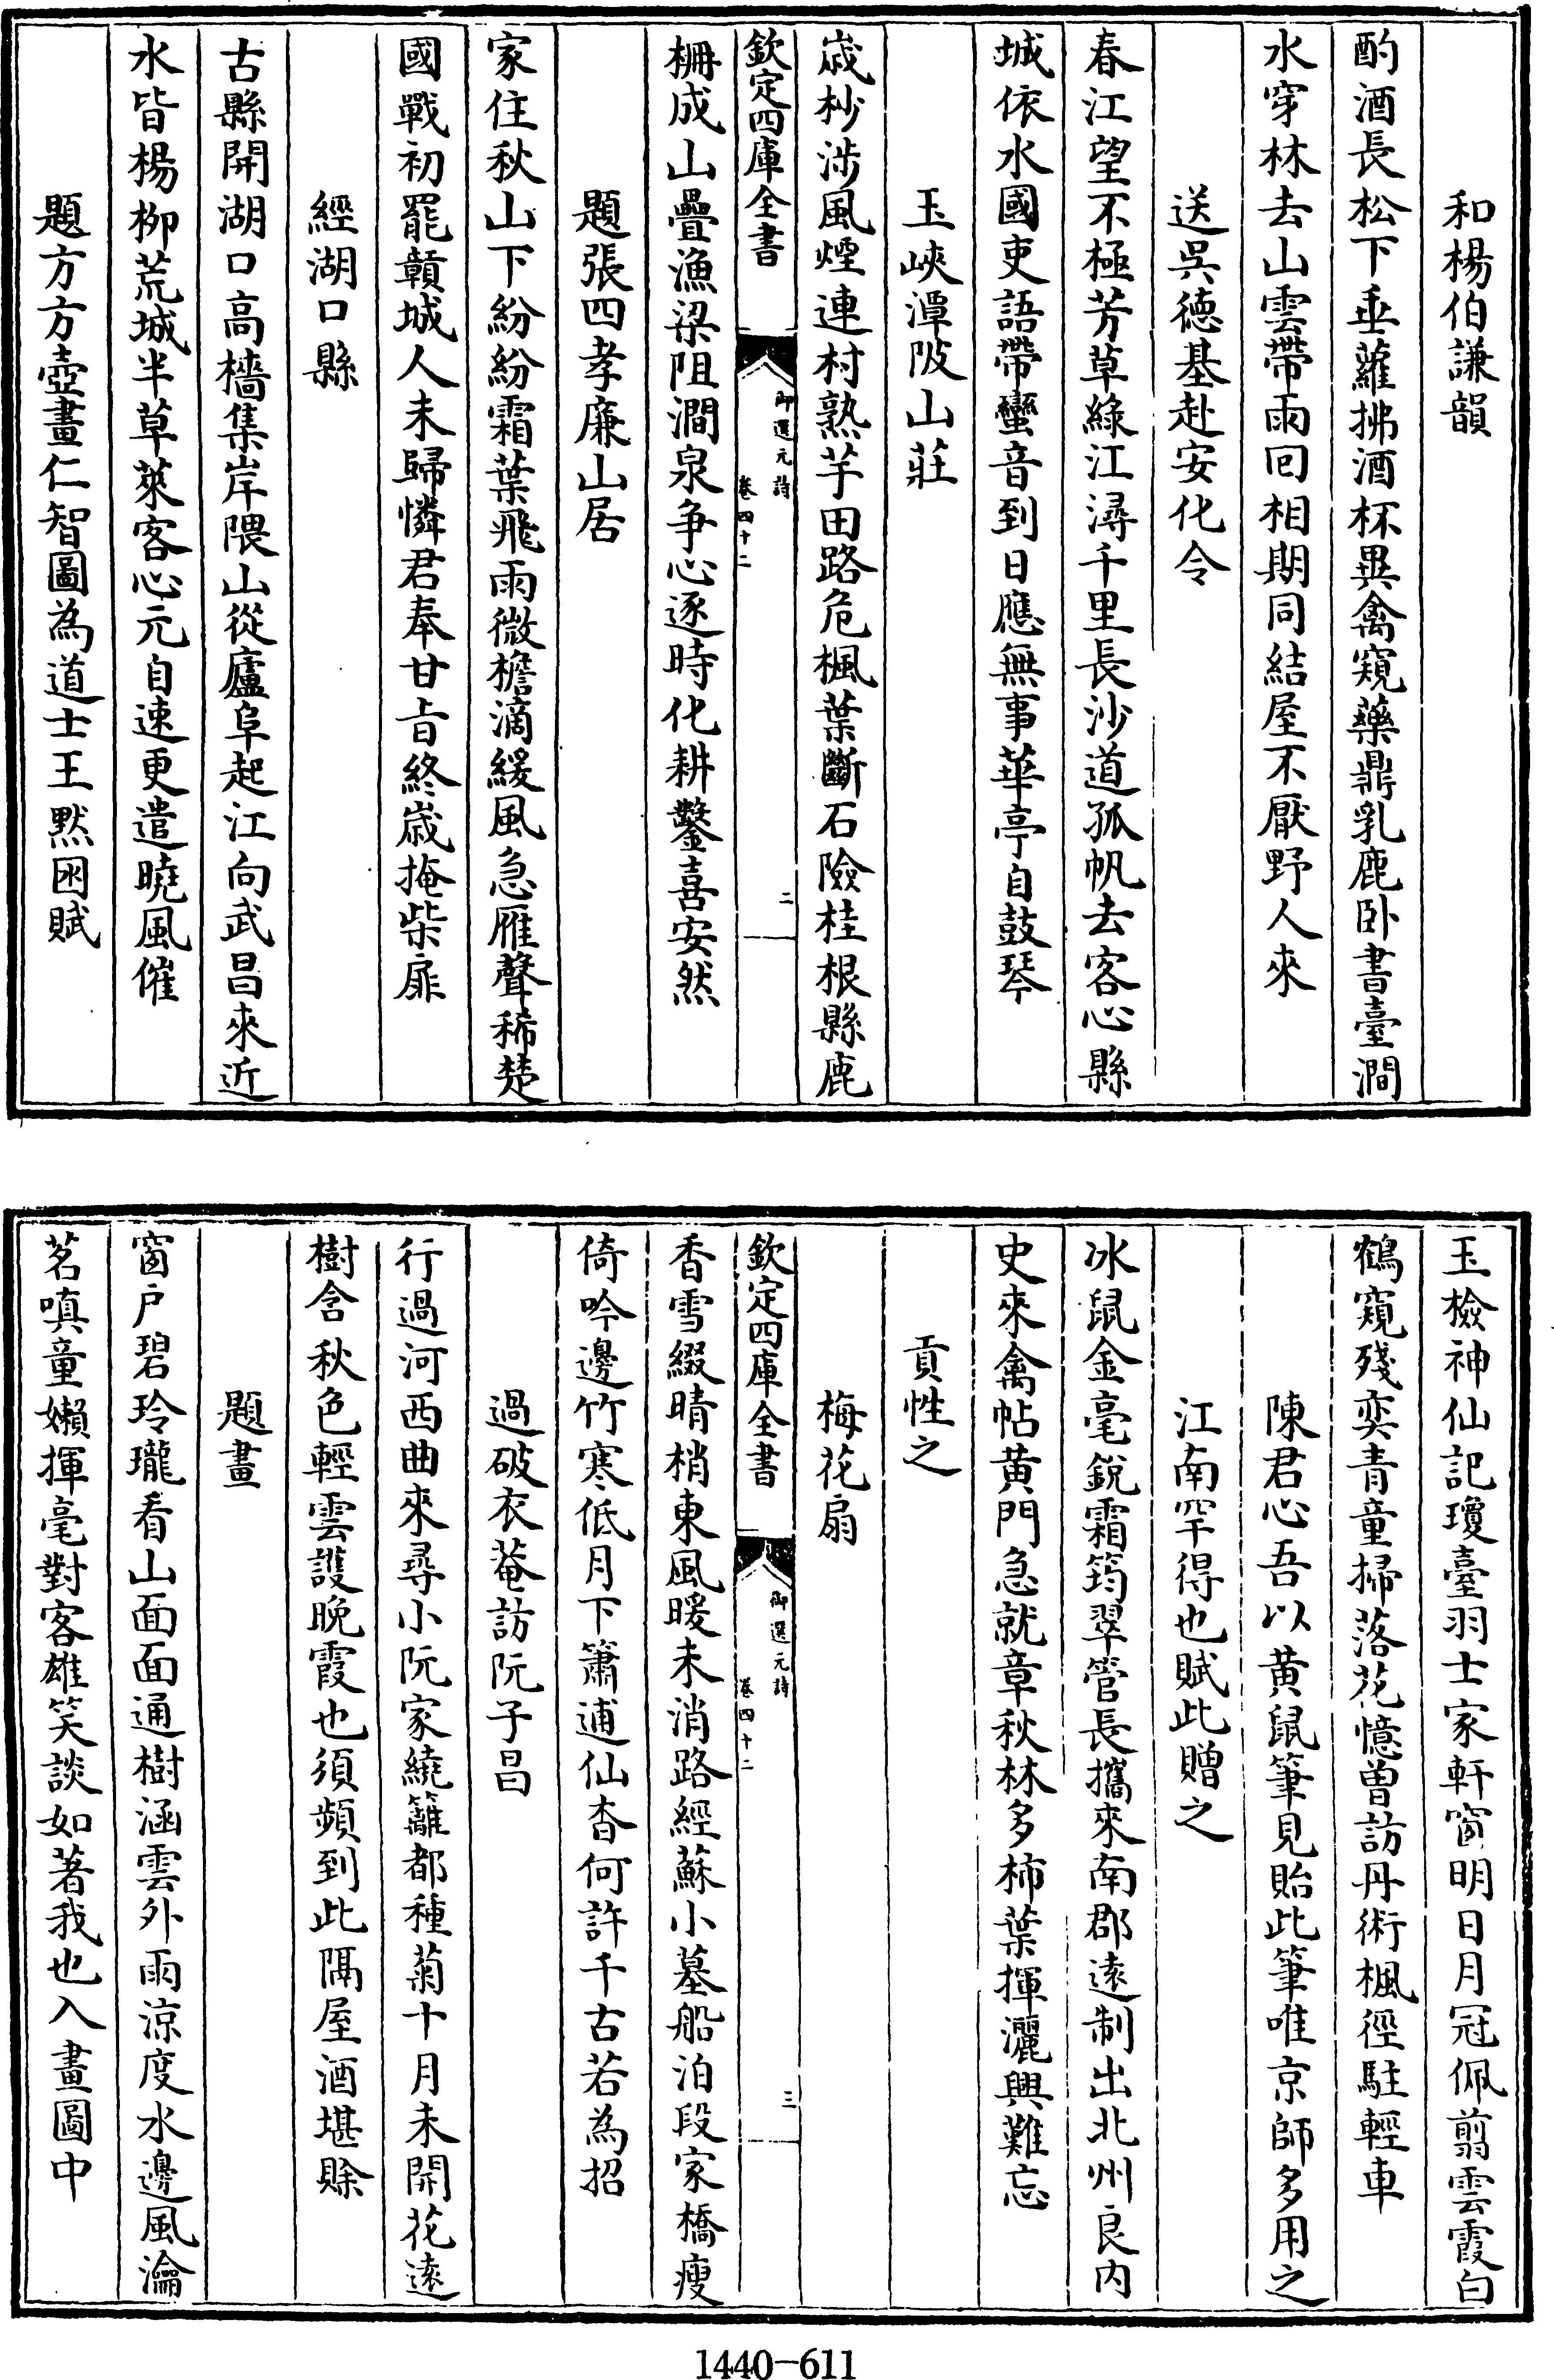 和楊伯謙韻
酌酒長松下垂蘿拂酒杯異禽窺藥鼎乳鹿卧書臺澗
水穿林去山雲帶雨回相期同結屋不厭野人來
送吳德基赴安化令
春江望不極芳草綠江潯千里長沙道孤帆去客心縣
城依水國吏語帶蠻音到日應無事華亭自鼓琴
玉峽潭陂山莊
歲杪涉風煙連村熟芋田路危楓葉斷石險桂根縣鹿
欽定四庫全書
御選元詩
卷四十二
二
柵成山疊漁梁阻澗泉争心逐時化耕鑿喜安然
題張四孝廉山居
家住秋山下紛紛霜葉飛雨微檐滴緩風急雁聲稀楚
國戰初罷贛城人未歸憐君奉甘旨終歲掩柴扉
經湖口縣
古縣開湖口高檣集岸隈山從廬阜起江向武昌來近
水皆楊柳荒城半草萊客心元自速更遣曉風催
題方方壺畫仁智圖為道士王默囦賦
玉檢神仙記瓊臺羽士家軒窗明日月冠佩翦雲霞白
鶴窺殘奕青童掃落花憶曽訪丹術楓徑駐輕車
陳君心吾以黄鼠筆見貽此筆唯京師多用之
江南罕得也賦此贈之
冰鼠金毫銳霜筠翠管長攜來南郡逺制出北州良内
史來禽帖黄門急就章秋林多柿葉揮灑興難忘
貢性之
梅花扇
欽定四庫全書
御選元詩
卷四十二
三
香雪綴晴梢東風暖未消路經蘇小墓船泊段家橋瘦
倚吟邊竹寒低月下簫逋仙杳何許千古若為招
過破衣菴訪阮子昌
行過河西曲來尋小阮家繞籬都種菊十月未開花逺
樹含秋色輕雲護晚霞也須頻到此隔屋酒堪賒
題畫
窗户碧玲瓏看山面面通樹涵雲外雨涼度水邊風瀹
茗嗔童嬾揮毫對客雄笑談如著我也入畫圖中
1440-611